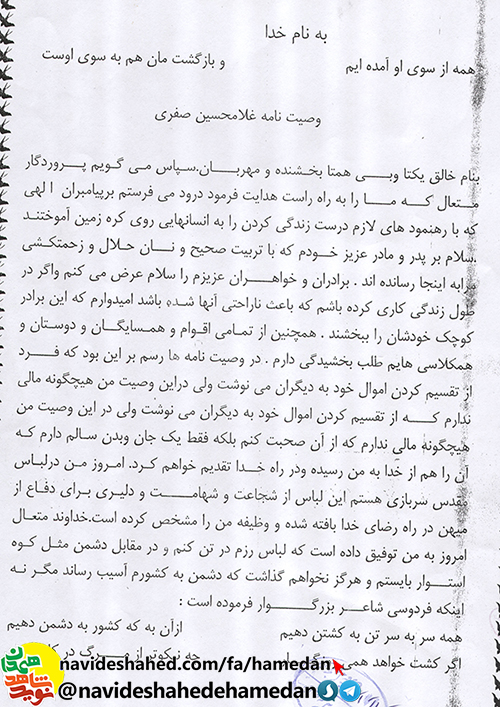 به نام خدا
همه از سوی او آمده ایم و بازگشت مان هم به سوی اوست
وصیت نامه غلامحسین صفری
بنام خالق یکتا وبی همتا بخشنده و مهربان.سپاس می گویم پروردگار
متعال که ما را به راه راست هدایت فرمود درود می فرستم برپیامبران الهی
که با رهنمود های لازم درست زندگی کردن را به انسانهایی روی کره زمین آموختند
.سلام بر پدر و مادر عزیز خودم که با تربیت صحیح و نان حلال و زحمتکشی
مرابه اینجا رسانده اند . برادران و خواهران عزیزم را سلام عرض می کنم واگر در
طول زندگی کاری کرده باشم که باعث ناراحتی آنها شده باشد امیدوارم که این برادر
کوچک خودشان را ببخشند . همچنین از تمامی اقوام و همسایگان و دوستان و
همکلاسی هایم طلب بخشیدگی دارم . در وصیت نامه ها رسم بر این بود که فرد
از تقسیم کردن اموال خود به دیگران می نوشت ولی دراین وصیت من هیچگونه مالی
ندارم که از تقسیم کردن اموال خود به دیگران می نوشت ولی در این وصیت من
هیچگونه مالی ندارم که از آن صحبت کنم بلکه فقط یک جان وبدن سالم دارم که
آن را هم از خدا به من رسیده ودر راه خدا تقدیم خواهم کرد. امروز من درلباس
مقدس سربازی هستم این لباس از شجاعت و شهامت و دلیری برای دفاع از
میهن در راه رضای خدا بافته شده و وظیفه من را مشخص کرده است.خداوند متعال
امروز به من توفیق داده است که لباس رزم در تن کنم و در مقابل دشمن مثل کوه
استوار بایستم و هرگز نخواهم گذاشت که دشمن به کشورم آسیب رساند مگر نه
اینکه فردوسی شاعر بزرگوار فرموده است :
همه سر به سر تن به کشتن دهیم ازآن به که کشور به دشمن دهیم
اگر کشت خواهد همی چه نیکوتر از مرگ در
navideshahed.com/fa/hamedan
@navideshahedehamedan
نوید شاهد همدان